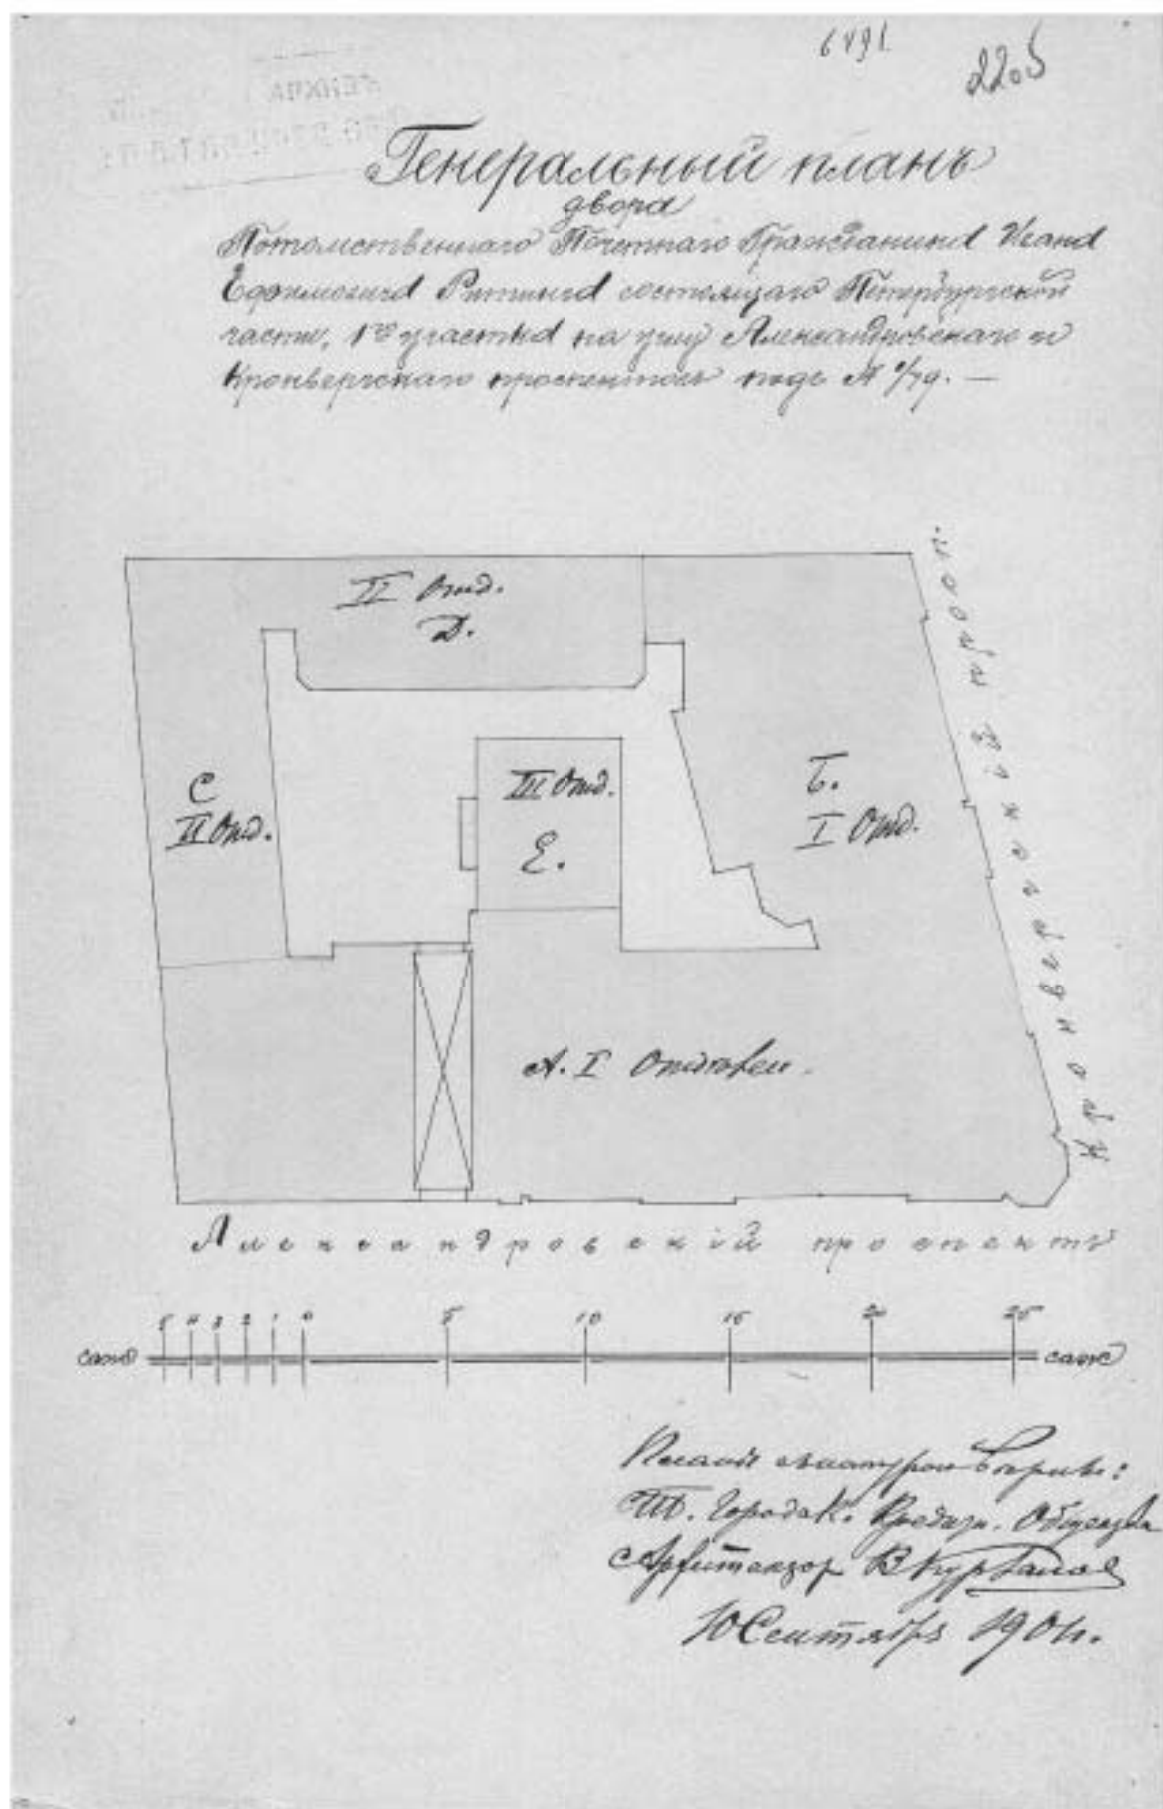 6491
2205
Генеральный планъ
двора
Потомственнаго Почетнаго Гражданина Ивана
Ефимовича Ритинга состоящаго Петербургской
части, 1го участка на углу Александровскаго и
Кронвергскаго проспектовъ подъ №
II Отд.
Д.
С
II Отд.
III Отд.
Е.
Б.
I Отд.
А. I Отдѣлен.
Кронвергскій просп.
Александровскій проспектъ
5 4 3 2 1 0 5 10 15 20 25
саж саж
Планъ съ натурою вѣренъ:
Городск. Кредитн. Общества
Архитекторъ В Курбановъ
10 Сентября 1904.